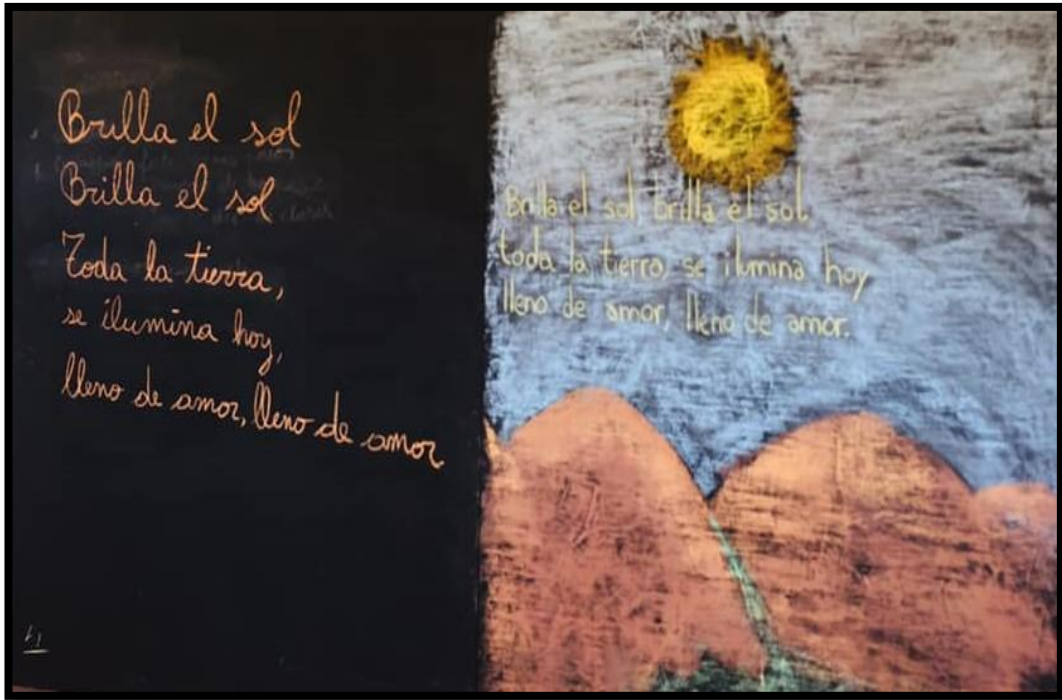 Brilla el sol
Brilla el sol
Toda la tierra,
se ilumina hoy,
lleno de amor, lleno de amor.
Brilla el sol, brilla el sol
toda la tierra, se ilumina hoy
lleno de amor, lleno de amor.